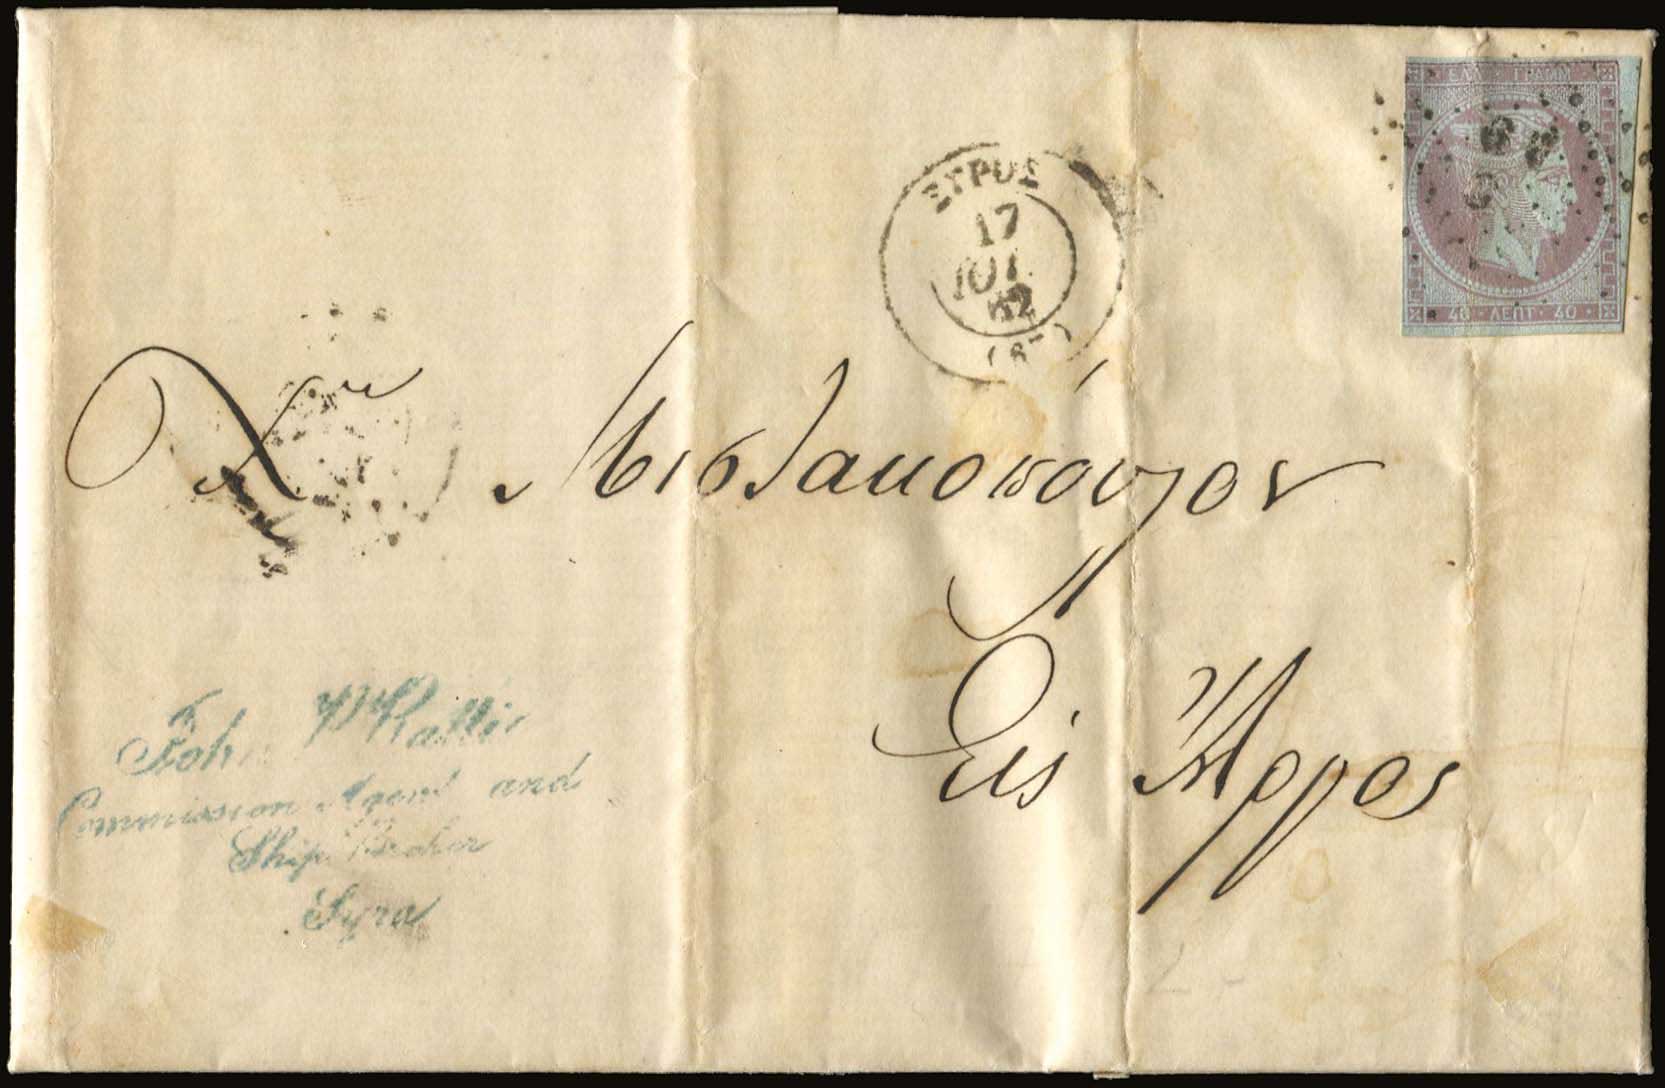 ΕΛΛ· ΓΡΑΜΜ
40 · ΛΕΠΤ · 40
ΣΥΡΟΣ
17
ΙΟΥ
62
(67)
Εἰς Ἄργος
John Ralli
Commission Agent and
Ship Broker
Syra